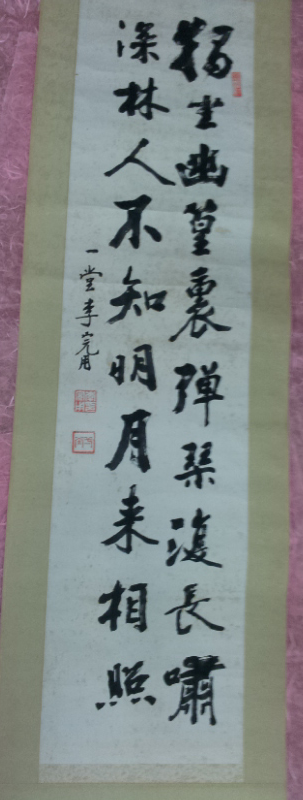 獨坐幽篁裏彈琴復長嘯
深林人不知明月来相照
一堂李完用